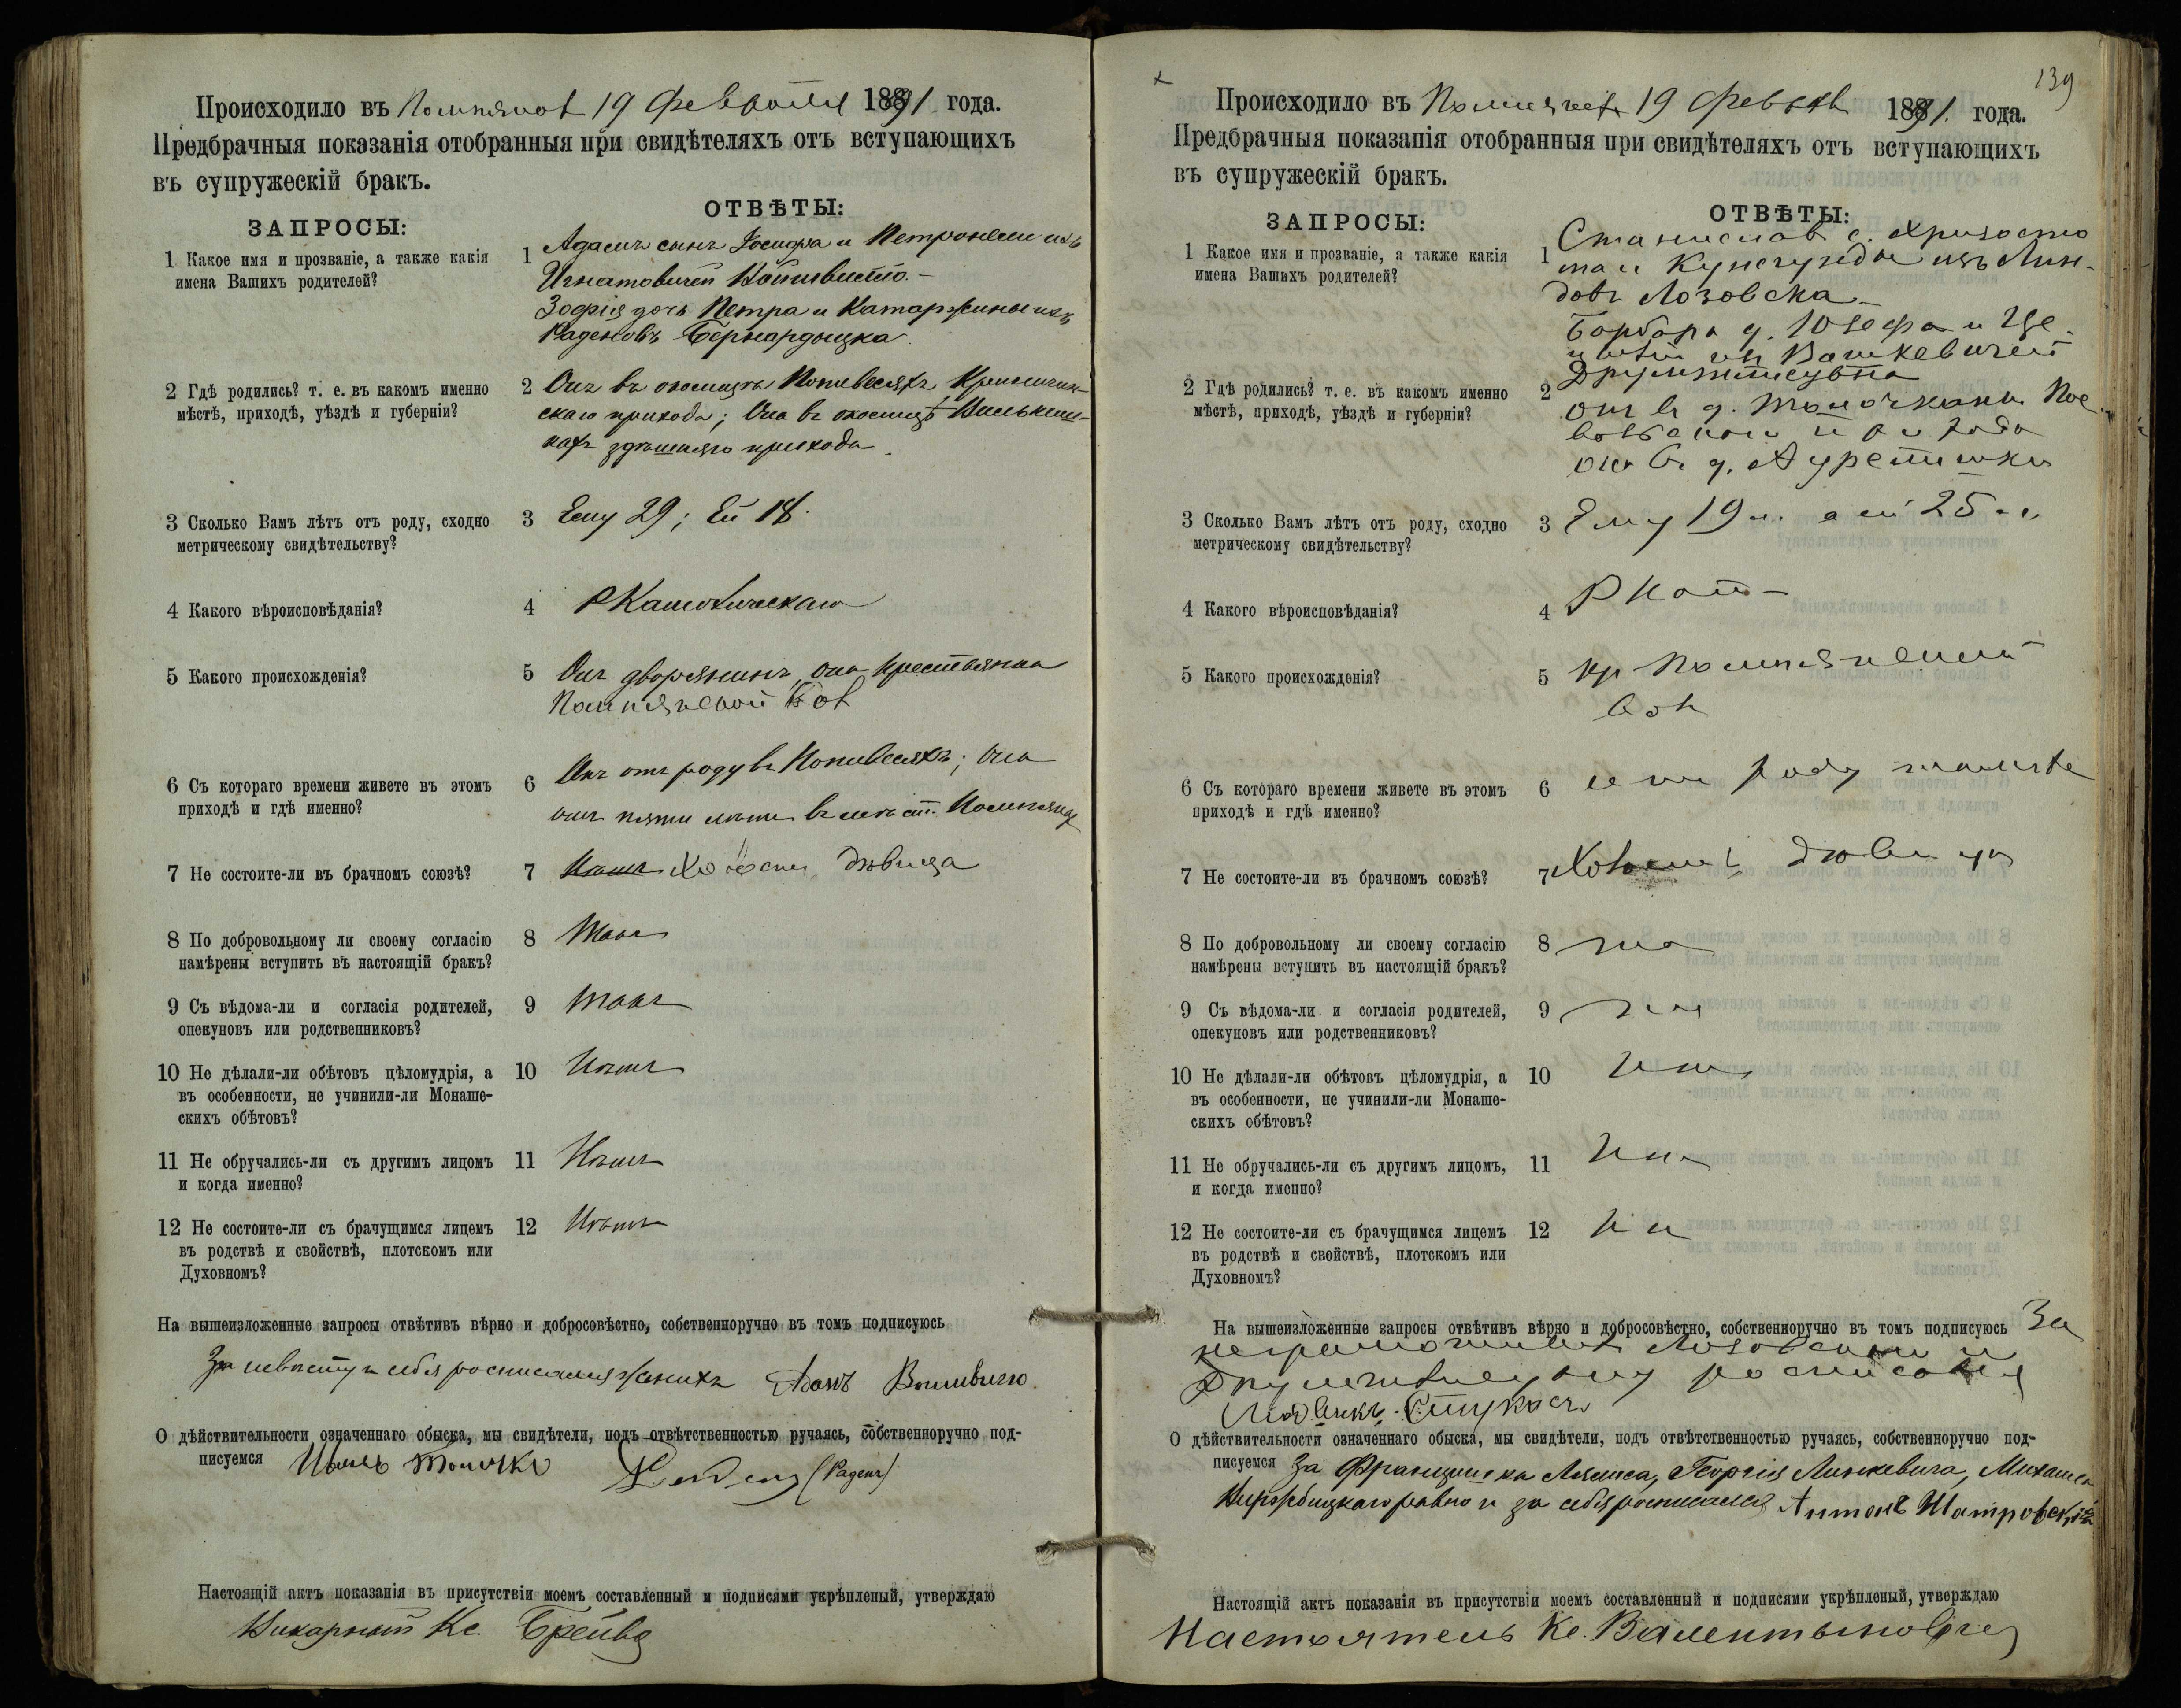 Происходило въ Помпянах 19 Февраля 1891 года.
Предбрачныя показанія отобранныя при свидѣтеляхъ отъ вступающихъ
въ супружескій бракъ.
ЗАПРОСЫ:
ОТВѢТЫ:
1 Какое имя и прозваніе, а также какія
имена Вашихъ родителей?
1 Адамъ сынъ Іосифа и Петронели изъ
Игнатовичей
Зофія дочь Петра и Катаржины изъ
Раденовъ Бернардыцка.
2 Гдѣ родились? т. е. въ какомъ именно
мѣстѣ, приходѣ, уѣздѣ и губерніи?
2 Онъ въ околицѣ Попивесяхъ
скаго прихода; Она въ околицѣ
здѣшняго прихода
3 Сколько Вамъ лѣтъ отъ роду, сходно
метрическому свидѣтельству?
3 Ему 29; Ей 18.
4 Какого вѣроисповѣданія?
4 Р Католическаго
5 Какого происхожденія?
5 Онъ дворянинъ, она крестьянка
Помпянской Вол
6 Съ котораго времени живете въ этомъ
приходѣ и гдѣ именно?
6 Онъ отъ роду въ Попивесяхъ; Она
отъ пяти лѣтъ въ мѣст. Помпянах
7 Не состоите-ли въ брачномъ союзѣ?
7 Холосты Дѣвица
8 По добровольному ли своему согласію
намѣрены вступить въ настоящій бракъ?
8 Такъ
9 Съ вѣдома-ли и согласія родителей,
опекуновъ или родственниковъ?
9 Такъ
10 Не дѣлали-ли обѣтовъ цѣломудрія, а
въ особенности, не учинили-ли Монаше-
скихъ обѣтовъ?
10 Нѣтъ
11 Не обручались-ли съ другимъ лицомъ
и когда именно?
11 Нѣтъ
12 Не состоите-ли съ брачущимся лицемъ
въ родствѣ и свойствѣ, плотскомъ или
Духовномъ?
12 Нѣтъ
На вышеизложенные запросы отвѣтивъ вѣрно и добросовѣстно, собственноручно въ томъ подписуюсь
За невѣсту и себя росписался женихъ
О дѣйствительности означеннаго обыска, мы свидѣтели, подъ отвѣтственностью ручаясь, собственноручно под-
писуемся (Раденъ)
Настоящій актъ показанія въ присутствіи моемъ составленный и подписями укрѣпленый, утверждаю
Викарный Кс. Брейва
139
Происходило въ 19 Февраля 1891. года.
Предбрачныя показанія отобранныя при свидѣтеляхъ отъ вступающихъ
въ супружескій бракъ.
ЗАПРОСЫ:
ОТВѢТЫ:
1 Какое имя и прозваніе, а также какія
имена Вашихъ родителей?
1 Станислав с. Хризосто
ма и Кунегунды изъ Лин-
довъ Лозовска
Барбара д. Юзефа и
изъ Вашкевичей
2 Гдѣ родились? т. е. въ какомъ именно
мѣстѣ, приходѣ, уѣздѣ и губерніи?
2 онъ в д.
прихода
она въ д.
3 Сколько Вамъ лѣтъ отъ роду, сходно
метрическому свидѣтельству?
3 Ему 19 л. а ей 25 л.
4 Какого вѣроисповѣданія?
4 Р Кат
5 Какого происхожденія?
5 кр Помпянской
Вол
6 Съ котораго времени живете въ этомъ
приходѣ и гдѣ именно?
6 роду
7 Не состоите-ли въ брачномъ союзѣ?
7 Холосты Дѣвица
8 По добровольному ли своему согласію
намѣрены вступить въ настоящій бракъ?
8
9 Съ вѣдома-ли и согласія родителей,
опекуновъ или родственниковъ?
9
10 Не дѣлали-ли обѣтовъ цѣломудрія, а
въ особенности, не учинили-ли Монаше-
скихъ обѣтовъ?
10
11 Не обручались-ли съ другимъ лицомъ,
и когда именно?
11
12 Не состоите-ли съ брачущимся лицемъ
въ родствѣ и свойствѣ, плотскомъ или
Духовномъ?
12
На вышеизложенные запросы отвѣтивъ вѣрно и добросовѣстно, собственноручно въ томъ подписуюсь За
неграмотных Лозовскаго и
росписался
Людвикъ
О дѣйствительности означеннаго обыска, мы свидѣтели, подъ отвѣтственностью ручаясь, собственноручно под-
писуемся За Францишка Георгія Линкевича, Михаила
равно и за себя росписался Антонъ Шатровскій
Настоящій актъ показанія въ присутствіи моемъ составленный и подписями укрѣпленый, утверждаю
Настоятель Кс. Валентыновичъ